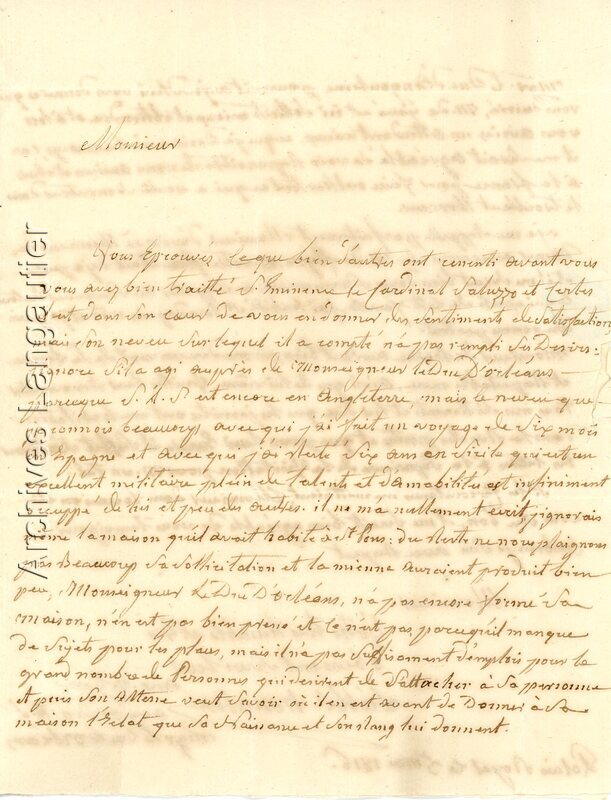 Monsieur
Vous Eprouvés ce que bien d'autres ont ressenti avant vous
vous avez bien traitté S. Eminence le Cardinal Saluzzo et Certes
est dans son cœur de vous en donner des sentiments de satisfaction
mais son neveu sur lequel il a compté n'a pas rempli ses Desirs:
ignore s'il a agi auprès de Monseigneur le Duc D'orléans —
parceque S. A. S. est encore en Angleterre, mais le neveu que
connois beaucoup avec qui j'ai fait un voyage de Six mois
Espagne et avec qui j'ai Resté Six ans en Sicile qui est un
excellent militaire plein de talents et d'amabilités est infiniment
occuppé de lui et peu des autres. il ne m'a nullement ecrit, j'ignorais
même la maison qu'il avait habité à St Pons: du Reste ne nous plaignons
pas Beaucoup Sa sollicitation et la mienne auraient produit bien
peu, Monseigneur Le Duc D'orléans, n'a pas encore formé Sa
maison, n'en est pas bien pressé et ce n'est pas parcequ'il manque
de Sujets pour les places, mais il n'a pas Suffisament d'emplois pour le
grand nombre de Personnes qui desirent de S'attacher à Sa personne
et puis Son Altesse veut Savoir où il en est avant de Donner à Sa
maison l'Eclat que Sa Naissance et Son Rang lui donnent.
Palais Royal le 1816.
Archives Langautier